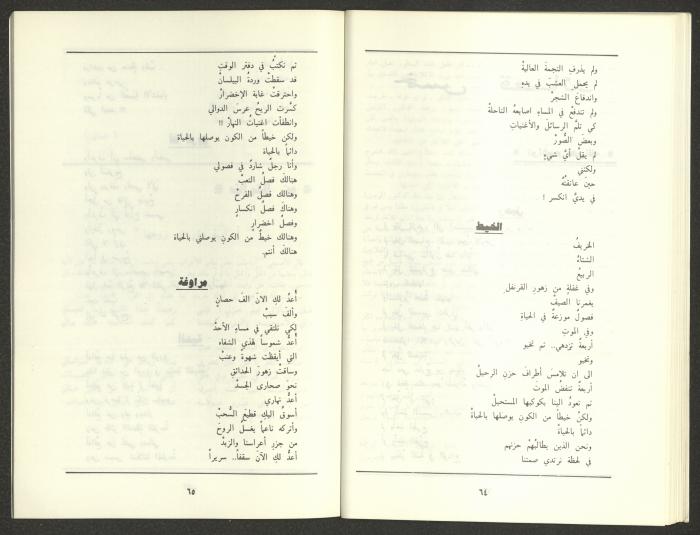 ولم يذرفِ النجمةَ العاليةْ
لم يحملِ العشبَ في يدهِ
واندفاعَ الشجرْ
ولم تندفعْ في المساءِ اصابعهُ الناحلةْ
كي تلمَّ الرسائلَ والأغنياتِ
وبعضَ الصُّوَرْ
لم يقلْ أيَّ شيءٍ
ولكنني
حينَ عانقتُهُ
في يديَّ انكسر !
الخيط
الخريفُ
الشتاءُ
الربيعُ
وفي غفلةٍ من زهورِ القرنفل
يغمرنا الصيفُ
فصولٌ موزعةٌ في الحياةِ
وفي الموتِ
أربعةٌ تزدهي.. ثم تخبو
وتخبو
الى ان تلامسَ أطرافَ حزنِ الرحيلْ
أربعةٌ تنفضُ الموتَ
ثم تعودُ الينا بكوكبها المستحيلْ
ولكنَّ خيطاً من الكونِ يوصلها بالحياةْ
دائماً بالحياةْ
ونحن الذين يطالبُهمْ حزنهم
في لحظة نرتدي صمتنا
٦٤
ثم نكتبُ في دفتر الوقتِ
قد سقطتْ وردةُ البيلسانْ
واحترقتْ غابة الإخضرارْ
كسَّرت الريحُ عرسَ الدوالي
وانطفأت اغنياتُ النهارْ !!
ولكن خيطاً من الكون يوصلها بالحياة
دائماً بالحياة
وأنا رجلٌ شاردٌ في فصولي
هنالكَ فصلُ التعبْ
وهنالك فصلُ الفرحْ
وهناكَ فصلُ انكسارٍ
وفصلُ اخضرارٍ
وهنالك خيطٌ من الكونِ يوصلني بالحياة
هنالكَ أنتم.
مراوغة
أُعدُّ لكِ الانَ الفَ حصانٍ
وألفَ سببْ
لكي نلتقي في مساءِ الأحدْ
أُعدُّ شموساً لهذي الشفاه
التي أيقظت شهوةً وعنبْ
وساقتْ زهورَ الحدائقِ
نحوَ صحارى الجسدْ
أعدُّ نهاري
أسوقُ اليكِ قطيعَ السُّحبْ
وأتركه ناعماً يغسلُ الروحَ
من جزرِ أعراسنا والزبدْ
أُعدُّ لكِ الآنَ سقفاً.. سريراً
٦٥